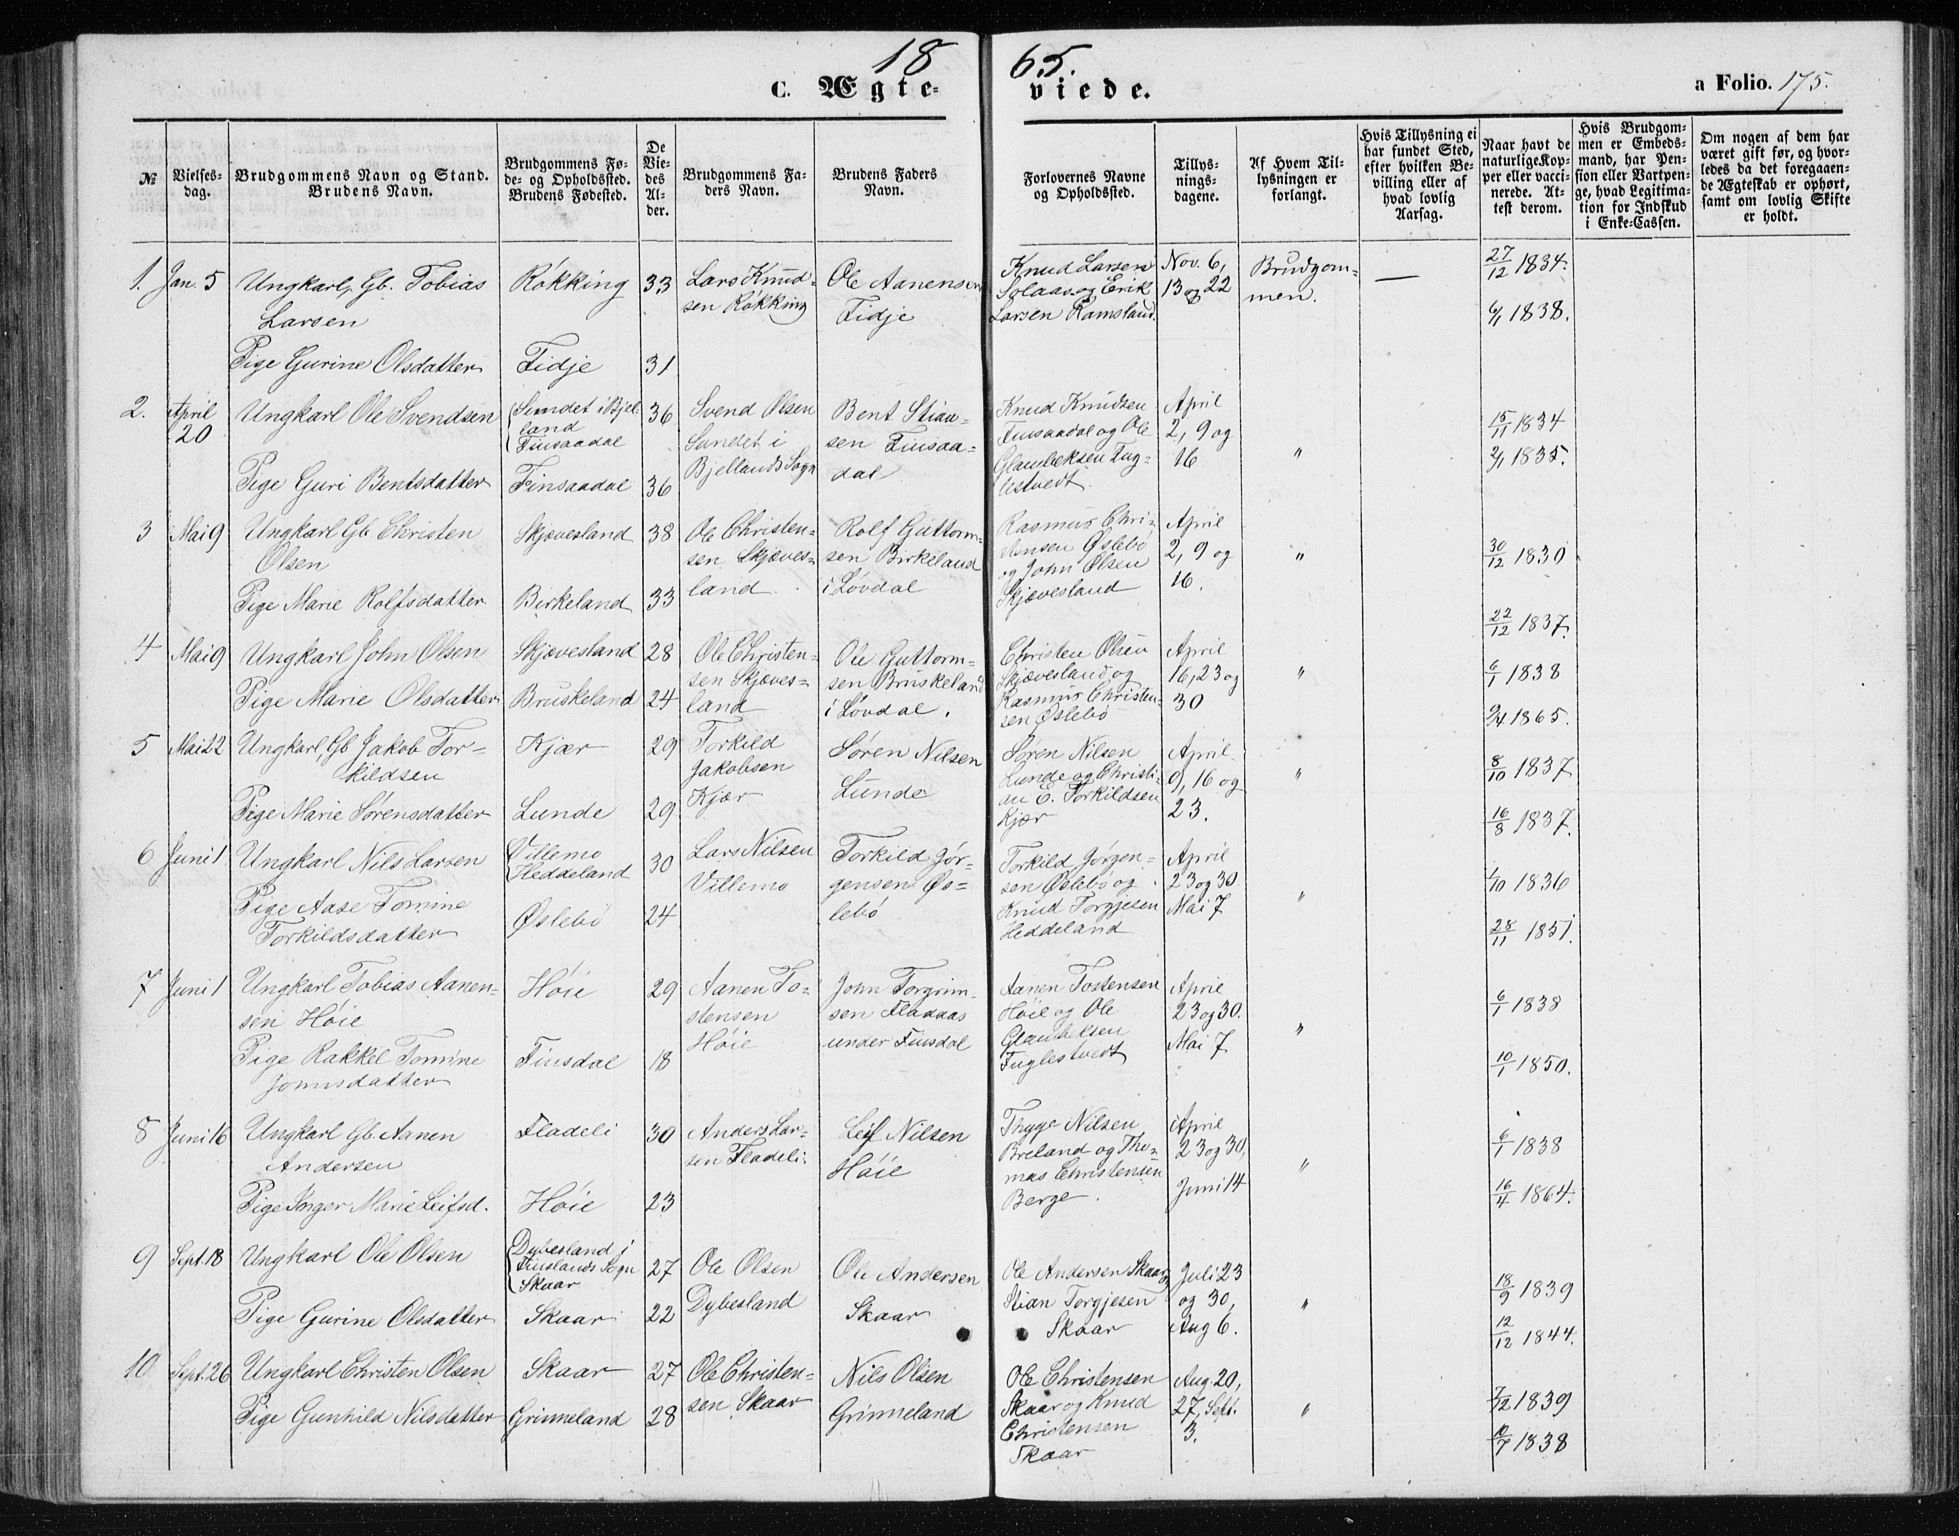 18 65.
C. Ægte- viede. a Folio. 175.
№
Vielses-
dag.
Brudgommens Navn og Stand.
Brudens Navn.
Brudgommens Fø-
de- og Opholdssted.
Brudens Fødested.
De
Vie-
des
Al-
der.
Brudgommens Fa-
ders Navn.
Brudens Faders
Navn.
Forlovernes Navne
og Opholdssted.
Tillys-
nings-
dagene.
Af Hvem Til-
lysningen er
forlangt.
Hvis Tillysning ei
har fundet Sted,
efter hvilken Be-
villing eller af
hvad lovlig
Aarsag.
Naar havt de
naturlige Kop-
per eller vacci-
nerede. At-
test derom.
Hvis Brudgom-
men er Embeds-
mand, har Pen-
sion eller Vartpen-
ge, hvad Legitima-
tion for Indskud
i Enke-Cassen.
Om nogen af dem har
været gift før, og hvor-
ledes da det foregaaen-
de Ægteskab er ophørt,
samt om lovlig Skifte
er holdt.
1. Jan. 5
Ungkarl, Gb. Tobias
Larsen
Pige Gurine Olsdatter
Røkking
Fidje
33
31
Lars Knud-
sen Røkking
Ole Aanensen
Fidje
Knud Larsen
Solaas og Erik
Larsen Ramsland.
Nov. 6,
13 og 22
Brudgom-
men.
—
27/12 1834.
6/1 1838.
2. April
20
Ungkarl Ole Svendsen
Pige Guri Bentsdatter
Sundet i Bjel-
land
Finsaadal
Finsaadal
36
36
Svend Olsen
Sundet i
Bjellands Sogn
Bent Stian-
sen Finsaa-
dal
Knud Knudsen
Finsaadal og Ole
Glambeksen Fug-
lestvedt
April
2, 9 og
16
"
15/11 1834
2/1 1835.
3 Mai 9
Ungkarl Gb Christen
Olsen
Pige Marie Rolfsdatter
Skjævesland
Birkeland
38
33
Ole Christen-
sen Skjæves-
land
Rolf Guttorm-
sen Birkeland
i Løvdal
Rasmus Chri-
stensen Øslebö
og John Olsen
Skjævesland
April
2, 9 og
16.
"
30/12 1830
22/12 1837.
4 Mai 9
Ungkarl John Olsen
Pige Marie Olsdatter
Skjævesland
Bruskeland
28
24
Ole Christen-
sen Skjæves-
land
Ole Guttorm-
sen Bruskeland
i Løvdal.
Christen Olsen
Skjævesland og
Rasmus Christen-
sen Øslebö
April
16, 23 og
30
"
6/1 1838
9/4 1865.
5 Mai 22
Ungkarl, Gb Jakob Tor-
kildsen
Pige Marie Sørensdatter
Kjær
Lunde
29
29
Torkild
Jakobsen
Kjær
Søren Nilsen
Lunde
Søren Nilsen
Lunde og Christi-
an E. Torkildsen
Kjær
April
9, 16 og
23.
"
8/10 1837
16/8 1837.
6 Juni 1
Ungkarl Nils Larsen
Pige Aase Tomine
Torkildsdatter
Villemo
Heddeland
Øslebö
30
24
Lars Nilsen
Villemo
Torkild Jør-
gensen Øs-
lebö
Torkild Jørgen-
sen Øslebö og
Knud Torgjesen
Heddeland
April
23 og 30
Mai 7
"
1/10 1836
28/11 1851.
7 Juni 1
Ungkarl Tobias Aanen-
sen Höie
Pige Rakkel Tomine
Jonnsdatter
Höie
Finsdal
29
18
Aanen To-
stensen
Höie
John Torgrim-
sen Fladaas
under Finsdal
Aanen Tostensen
Höie og Ole
Glambeksen
Fuglestvedt
April
23 og 30.
Mai 7
"
6/1 1838
10/1 1850.
8 Juni 16
Ungkarl Gb Aanen
Andersen
Pige Inger Marie Leifsd.
Fladeli
Höie
30
23
Anders Lar-
sen Fladeli.
Leif Nilsen
Höie
Thyge Nilsen
Breland og Tho-
mas Christensen
Berge.
April
23 og 30,
Juni 14
"
6/1 1838
16/4 1864.
9 Sept. 18
Ungkarl Ole Olsen
Pige Gurine Olsdatter
Dybesland i
Finslands Sogn
Skaar
Skaar
27
22
Ole Olsen
Dybesland
Ole Andersen
Skaar
Ole Andersen Skaar,
Stian Torgjesen
Skaar
Juli 23
og 30,
Aug 6.
"
18/9 1839
12/12 1844.
10 Sept. 26
Ungkarl Christen Olsen
Pige Gunhild Nilsdatter
Skaar
Grinneland
27
28
Ole Christen-
sen Skaar
Nils Olsen
Grinneland
Ole Christensen
Skaar og Knud
Christensen
Skaar
Aug. 20,
27, Sept.
3.
"
7/12 1839
10/7 1838